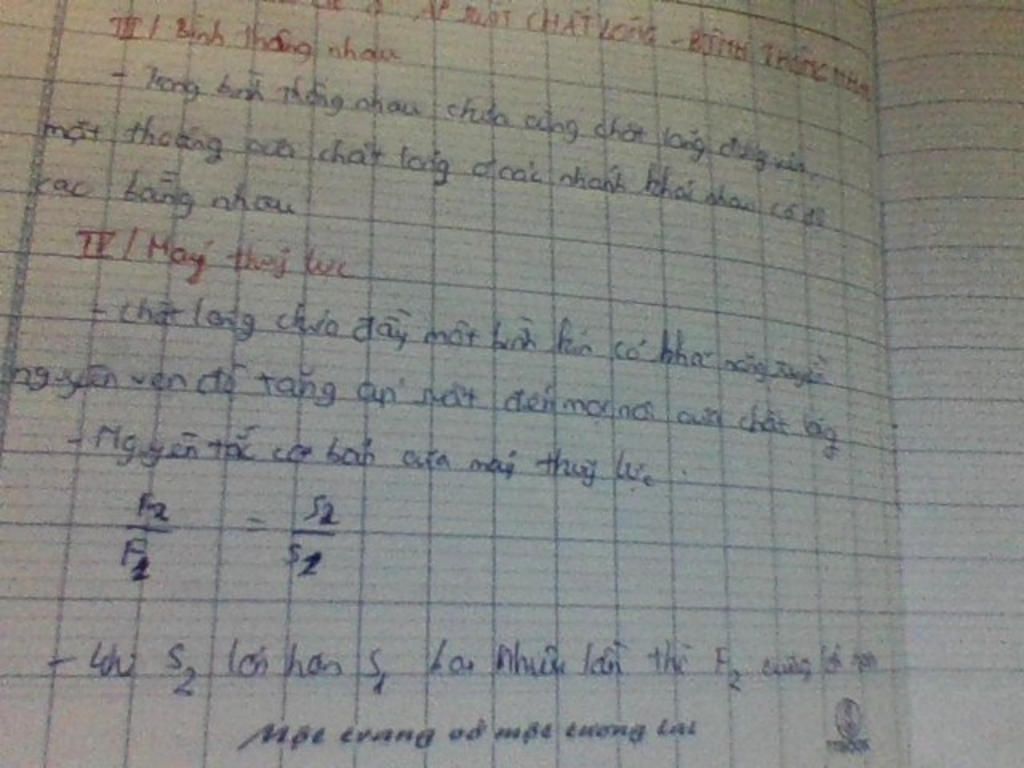 SUẤT CHẤT LỎNG - BÌNH THÔNG NHAU
III / Bình thông nhau
- Trong bình thông nhau chứa cùng chất lỏng đứng yên,
mặt thoáng của chất lỏng ở các nhánh khác nhau có độ
cao bằng nhau
IV / Máy thuỷ lực
- Chất lỏng chứa đầy một bình kín có khả năng truyền
nguyên vẹn độ tăng áp suất đến mọi nơi của chất lỏng
- Nguyên tắc cơ bản của máy thuỷ lực.
F2 / F1 = S2 / S1
- Khi S2 lớn hơn S1 bao nhiêu lần thì F2 cũng lớn hơn
Một trang vở một tương lai